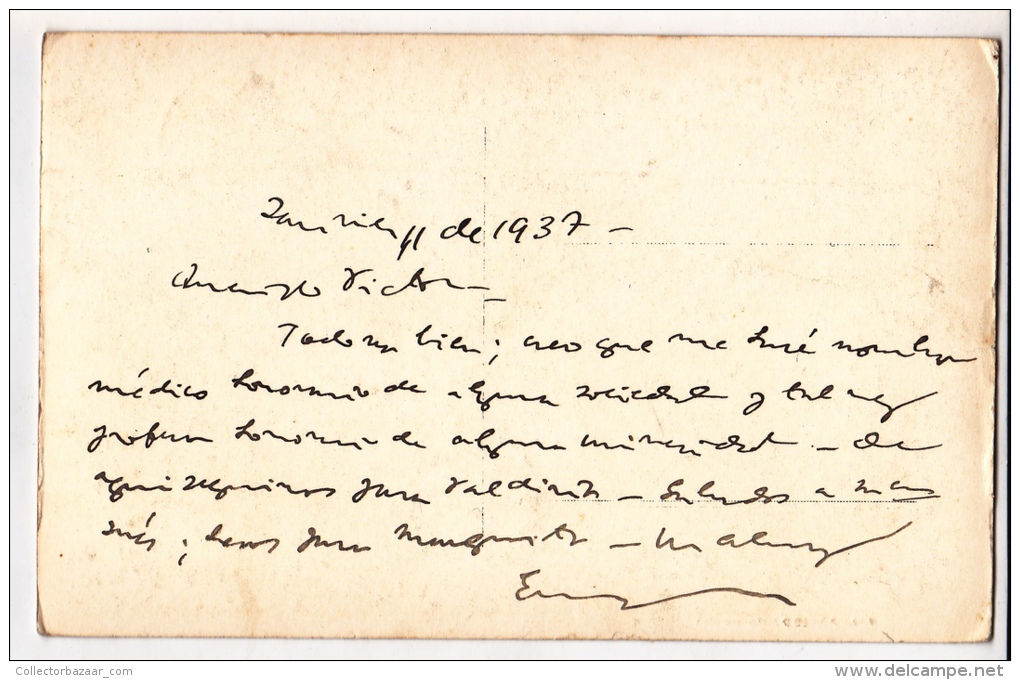 11 de 1937 –
Querido Victor –
Todo va bien; creo que me haré nombrar
médico honorario de alguna sociedad y tal vez
profesor honorario de alguna universidad – de
aqui seguimos para Valdivia – Saludos a
Inés; besos para Marguita – Un abrazo
CollectorbazaaR_com
www.delcampe.net